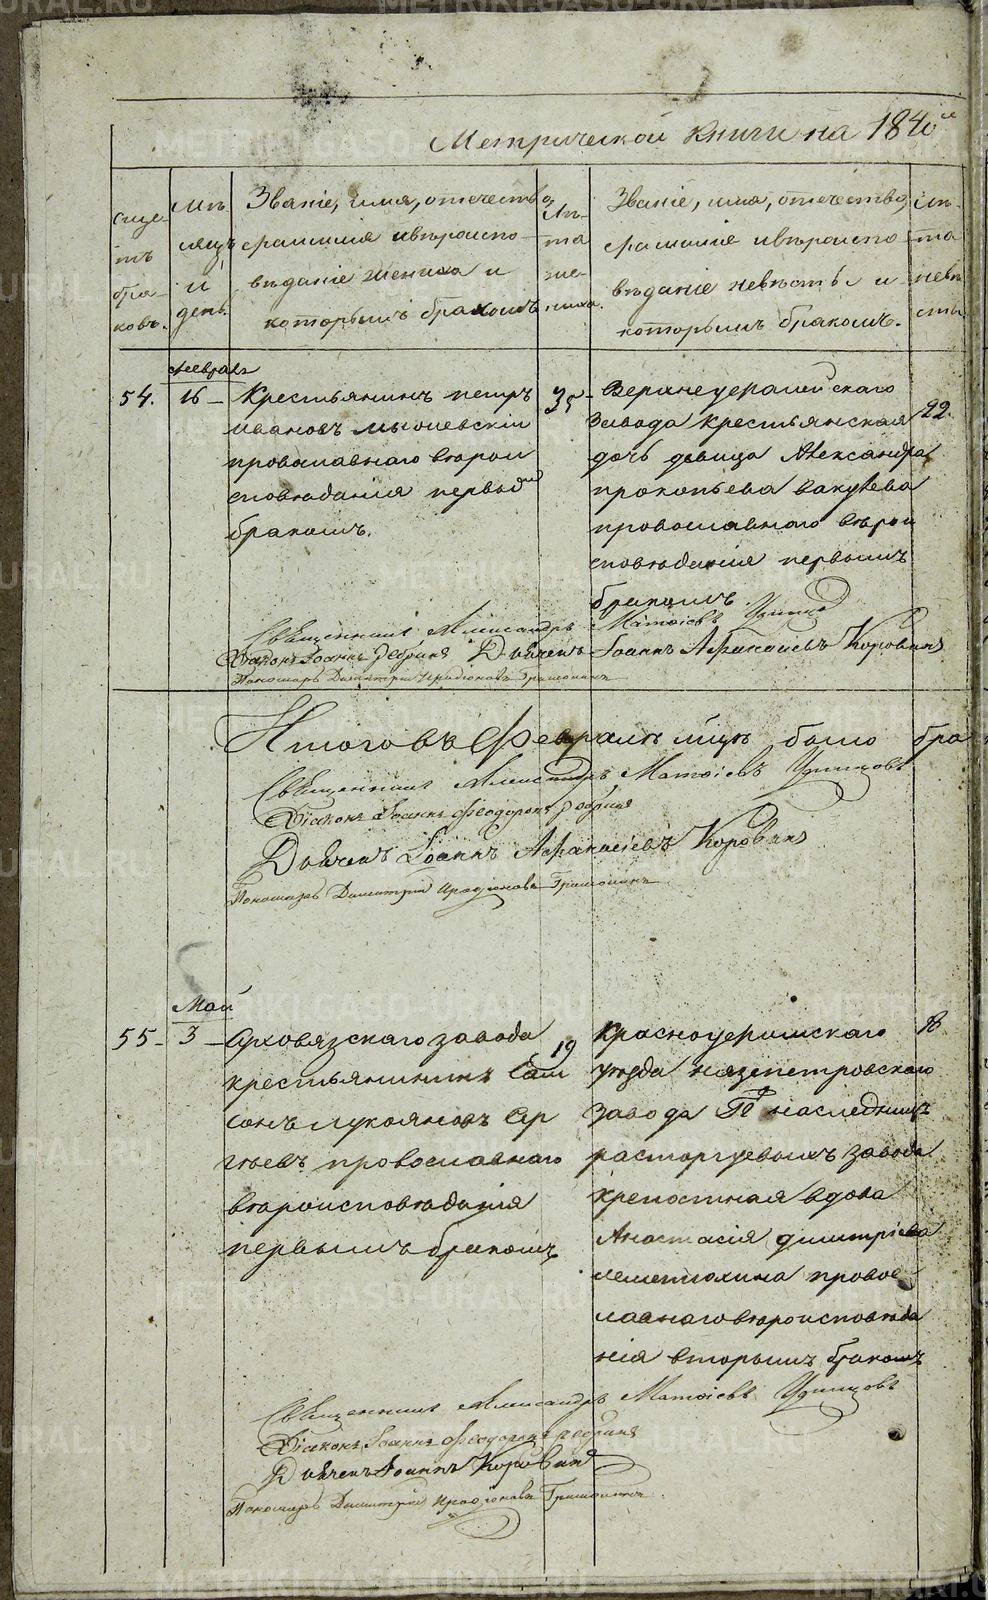 Метрической книги на 1840й
Счетъ браковъ.
Мѣсяцъ и день.
Званіе, имя, отечество,
фамилія и вѣроиспо-
вѣданіе жениха и
которымъ бракомъ
Лѣта жениха.
Званіе, имя, отечество,
фамиліе и вѣроиспо
вѣданіе невѣсты и
которымъ бракомъ.
Лѣта невѣсты
Февраль
54.
16
Крестьянинъ петръ
ивановъ
православнаго вѣрои
сповѣданія первым
бракомъ.
35
Верхнеуфалейскаго
завода крестьянская
дочь девица Александра
прокопьева вакуева
провославнаго вѣрои
сповѣданія первымъ
бракомъ.
22.
Священникъ Александръ Матѳіевъ Удинцов
Діаконъ Іоаннъ Дьячекъ Іоаннъ Афанасіевъ Коровинъ
Пономарь Димитрій
Итого въ Февралѣ мцѣ было бра
Священникъ Александръ Матѳіевъ Удинцовъ
Діаконъ Іоаннъ Феодоровъ
Дьячекъ Іоаннъ Афанасіевъ Коровинъ
Пономарь Димитрій Иродіоновъ
Май
55
3
завода
крестьянинъ Сам
сонъ лукояновъ Сер
гѣевъ провославнаго
вѣроисповѣданія
первымъ бракомъ
19
Красноуфимскаго
уѣзда нязепетровскаго
завода наследниц
расторгуевыхъ завода
крепостная вдова
Анастасія димитріева
провос
лавнаго вѣроисповѣда
нія вторымъ бракомъ
18
Священникъ Александръ Матѳіевъ Удинцовъ
Діаконъ Іоаннъ Феодоровъ
Дьячекъ Іоаннъ Коровин
Пономарь Димитрій Иродіоновъ